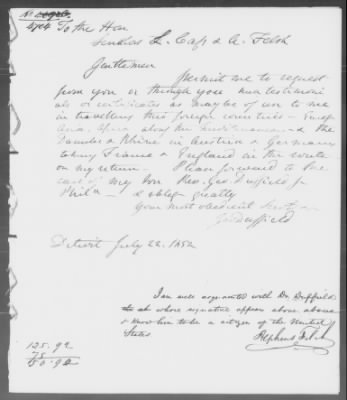 To the Hon
L. Cass & A. Felch
Gentlemen
Permit me to request
from you or through you such testimoni
als or certificates as may be of use to me
in travelling thro foreign countries — Europe
Asia, along the Mediterranean & the
Danube & Rhine in Austria & Germany
taking France & England in the route
on my return. Please forward to the
care of my Son Rev. Geo Duffield Jr
Phila — & oblige greatly
Your most obedient Servt
Geo Duffield
Detroit July 22. 1852
I am well acquainted with Dr. Duffield
whose signature appears above
& know him to be a citizen of the United
States.
Alpheus Felch
125.92
75
50.92